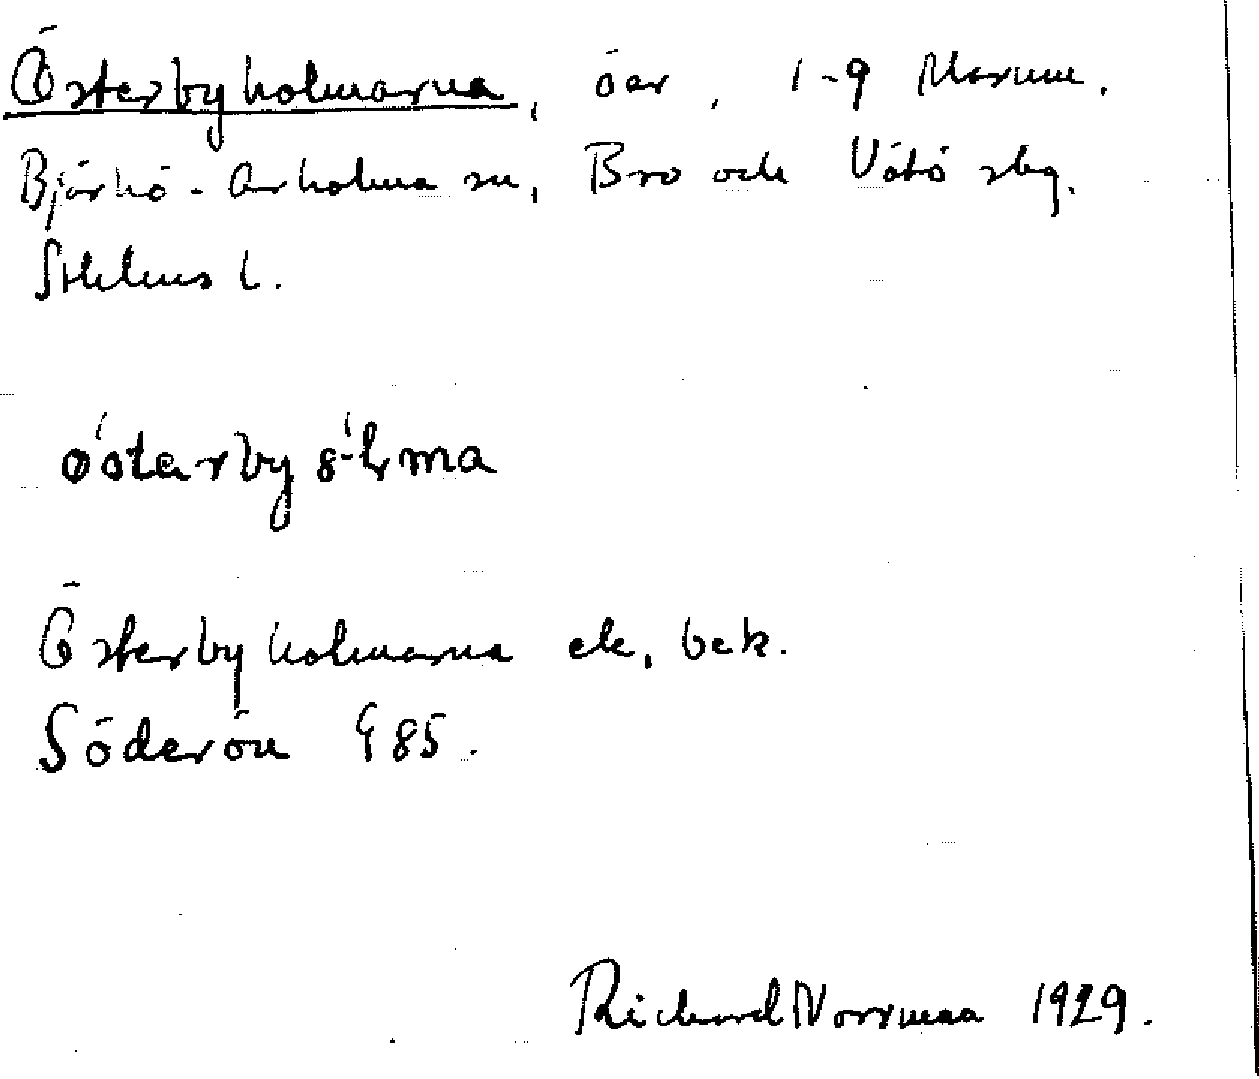 Österbyholmarna, öar, 1-9 Marum.
Björkö-Arholma sn, Bro och Vätö slg.
Sthlms l.

Österbyholmarna ek, bek.
Söderön 985.
Richard Norrman 1929.